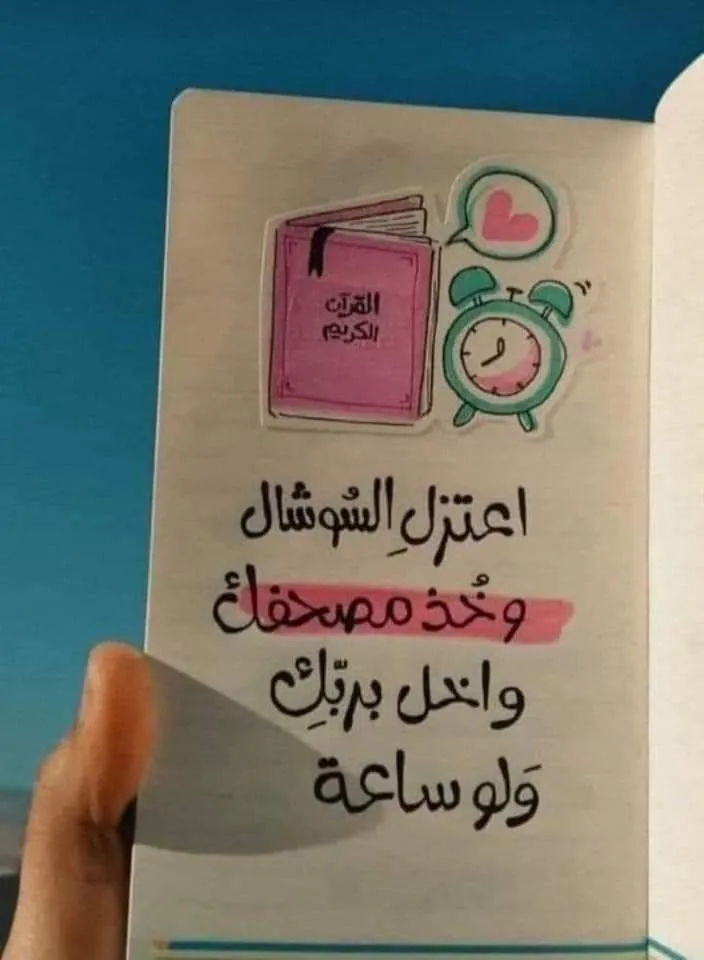 القرآن
الكريم
اعتزلِ السُوشال
وخُذ مصحفكَ
واخل بربّكِ
وَلو ساعة